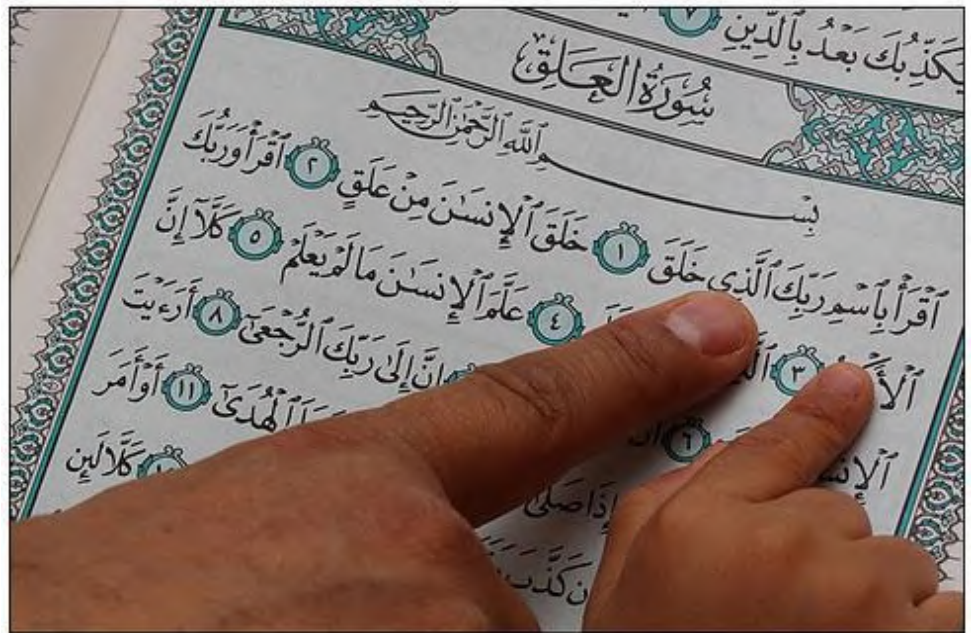 يُكَذِّبُكَ بَعْدُ بِٱلدِّينِ ٧
سُورَةُ العَلَقِ
بِسْمِ ٱللَّهِ ٱلرَّحْمَٰنِ ٱلرَّحِيمِ
ٱقْرَأْ بِٱسْمِ رَبِّكَ ٱلَّذِي خَلَقَ ١ خَلَقَ ٱلْإِنسَٰنَ مِنْ عَلَقٍ ٢ ٱقْرَأْ وَرَبُّكَ
٣ ٤ عَلَّمَ ٱلْإِنسَٰنَ مَا لَمْ يَعْلَمْ ٥ كَلَّآ إِنَّ
٦ إِنَّ إِلَىٰ رَبِّكَ ٱلرُّجْعَىٰٓ ٨ أَرَءَيْتَ
إِذَا صَلَّىٰٓ ٱلْهُدَىٰٓ ١١ أَوْ أَمَرَ
كَذَّبَ كَلَّا لَئِن